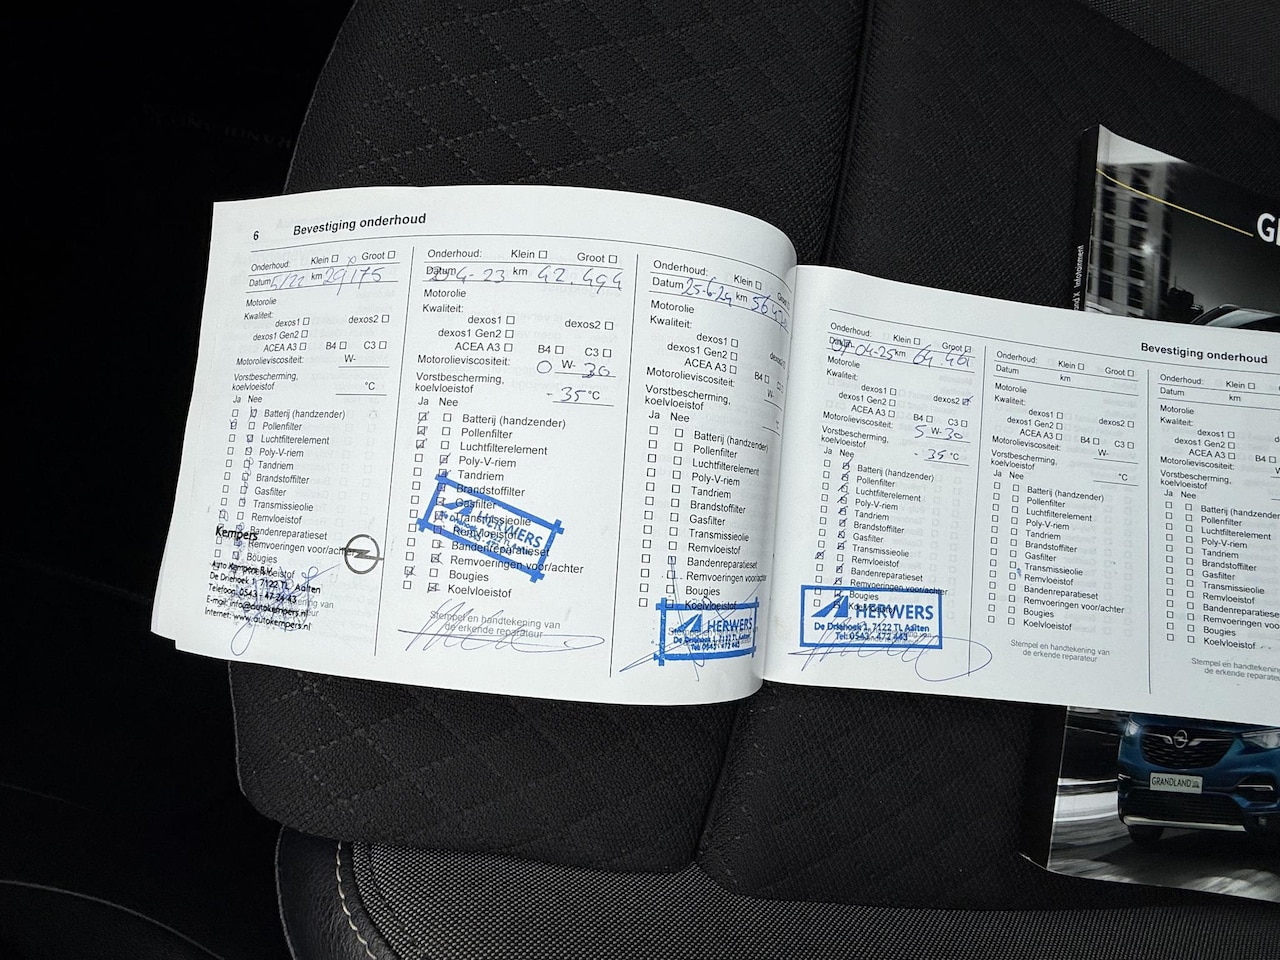 6 Bevestiging onderhoud
Onderhoud: Klein Groot
Datum 5/22 km 29175
Motorolie
Kwaliteit:
dexos1 dexos2
dexos1 Gen2
ACEA A3 B4 C3
Motorolieviscositeit: W-
Vorstbescherming,
koelvloeistof °C
Ja Nee
Batterij (handzender)
Pollenfilter
Luchtfilterelement
Poly-V-riem
Tandriem
Brandstoffilter
Gasfilter
Transmissieolie
Remvloeistof
Bandenreparatieset
Remvoeringen voor/achter
Bougies
Kempers
Auto Kempers B.V.
De Driehoek 1, 7122 TL Aalten
Telefoon: 0543 - 47 24 43
E-mail: info@autokempers.nl
Internet: www.autokempers.nl
Onderhoud: Klein Groot
Datum 4-23 km 42.494
Motorolie
Kwaliteit:
dexos1 dexos2
dexos1 Gen2
ACEA A3 B4 C3
Motorolieviscositeit: 0 W- 30
Vorstbescherming,
koelvloeistof - 35 °C
Ja Nee
Batterij (handzender)
Pollenfilter
Luchtfilterelement
Poly-V-riem
Tandriem
Brandstoffilter
Gasfilter
Transmissieolie
Remvloeistof
Bandenreparatieset
Remvoeringen voor/achter
Bougies
Koelvloeistof
HERWERS
Stempel en handtekening van
de erkende reparateur
Onderhoud: Klein Groot
Datum 25-6-24 km
Motorolie
Kwaliteit:
dexos1
dexos1 Gen2
ACEA A3 B4
Motorolieviscositeit: W-
Vorstbescherming,
koelvloeistof
Ja Nee
Batterij (handzender)
Pollenfilter
Luchtfilterelement
Poly-V-riem
Tandriem
Brandstoffilter
Gasfilter
Transmissieolie
Remvloeistof
Bandenreparatieset
Remvoeringen voor/achter
Bougies
Koelvloeistof
HERWERS
De Driehoek 1, 7122 TL Aalten
Tel: 0543 - 472 443
Bevestiging onderhoud
Onderhoud: Klein Groot
Datum 01-04-25 km 64.461
Motorolie
Kwaliteit:
dexos1 dexos2
dexos1 Gen2
ACEA A3 B4 C3
Motorolieviscositeit: 5 W- 30
Vorstbescherming,
koelvloeistof - 35 °C
Ja Nee
Batterij (handzender)
Pollenfilter
Luchtfilterelement
Poly-V-riem
Tandriem
Brandstoffilter
Gasfilter
Transmissieolie
Remvloeistof
Bandenreparatieset
Remvoeringen voor/achter
Bougies
Koelvloeistof
HERWERS
De Driehoek 1, 7122 TL Aalten
Tel: 0543 - 472 443
Onderhoud: Klein Groot
Datum km
Motorolie
Kwaliteit:
dexos1 dexos2
dexos1 Gen2
ACEA A3 B4 C3
Motorolieviscositeit: W-
Vorstbescherming,
koelvloeistof °C
Ja Nee
Batterij (handzender)
Pollenfilter
Luchtfilterelement
Poly-V-riem
Tandriem
Brandstoffilter
Gasfilter
Transmissieolie
Remvloeistof
Bandenreparatieset
Remvoeringen voor/achter
Bougies
Koelvloeistof
Stempel en handtekening van
de erkende reparateur
Onderhoud: Klein
Datum km
Motorolie
Kwaliteit:
dexos1
dexos1 Gen2
ACEA A3
Motorolieviscositeit:
Vorstbescherming,
koelvloeistof
Ja Nee
Batterij (handzender)
Pollenfilter
Luchtfilterelement
Poly-V-riem
Tandriem
Brandstoffilter
Gasfilter
Transmissieolie
Remvloeistof
Bandenreparatieset
Remvoeringen
Bougies
Koelvloeistof
Stempel en handtekening
de erkende
Infotainment
GRANDLAND X